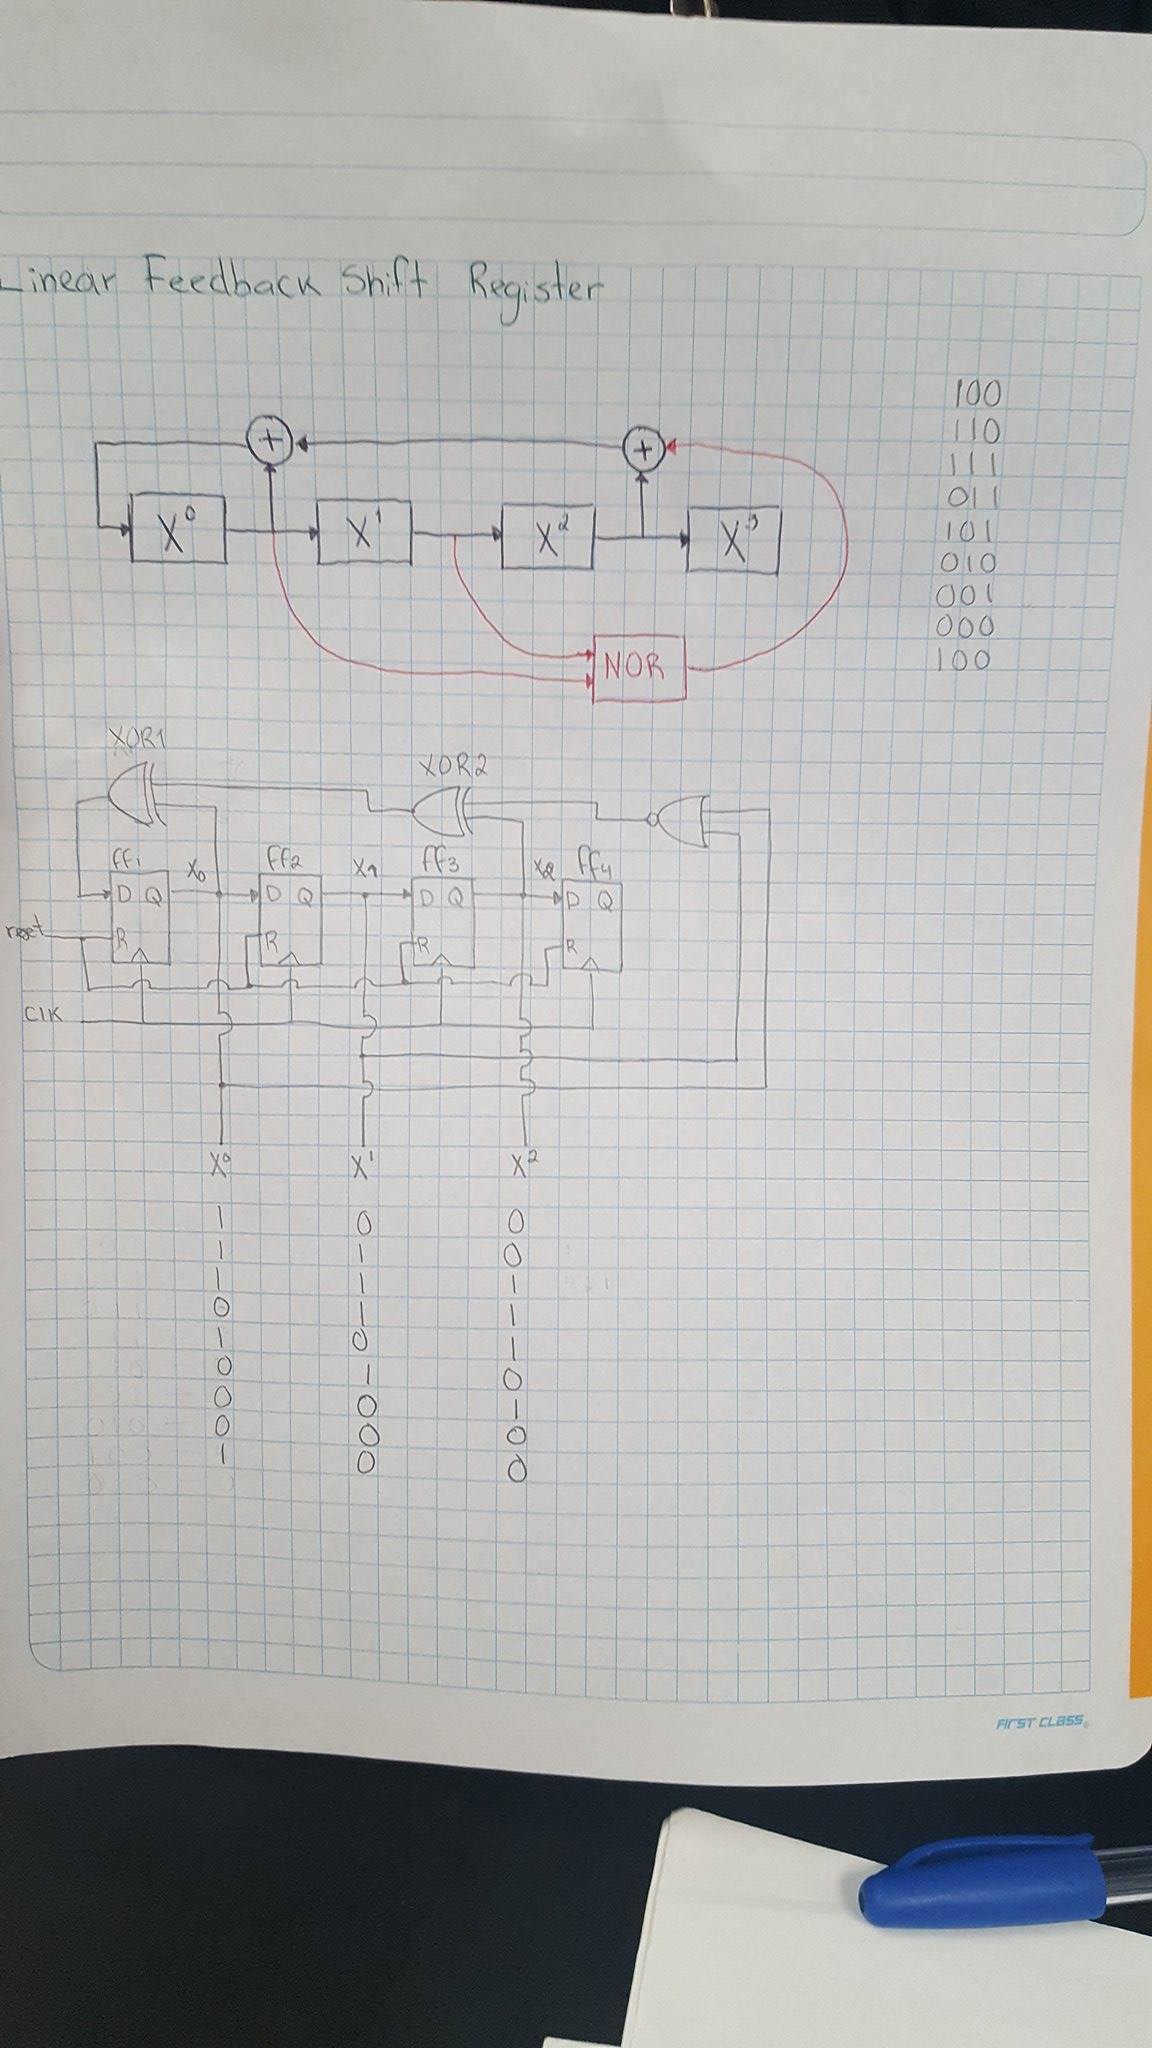 Linear Feedback Shift Register
100
110
111
011
101
010
001
000
100
+ +
X⁰ X¹ X² X³
NOR
XOR1
XOR2
ff1 X₀ ff2 X1 ff3 X2 ff4
D Q D Q D Q D Q
reset R R R R
ClK
X⁰ X¹ X²
1 0 0
1 1 0
1 1 1
0 1 1
1 0 1
0 1 0
0 0 1
0 0 0
1 0 0
FIRST CLASS